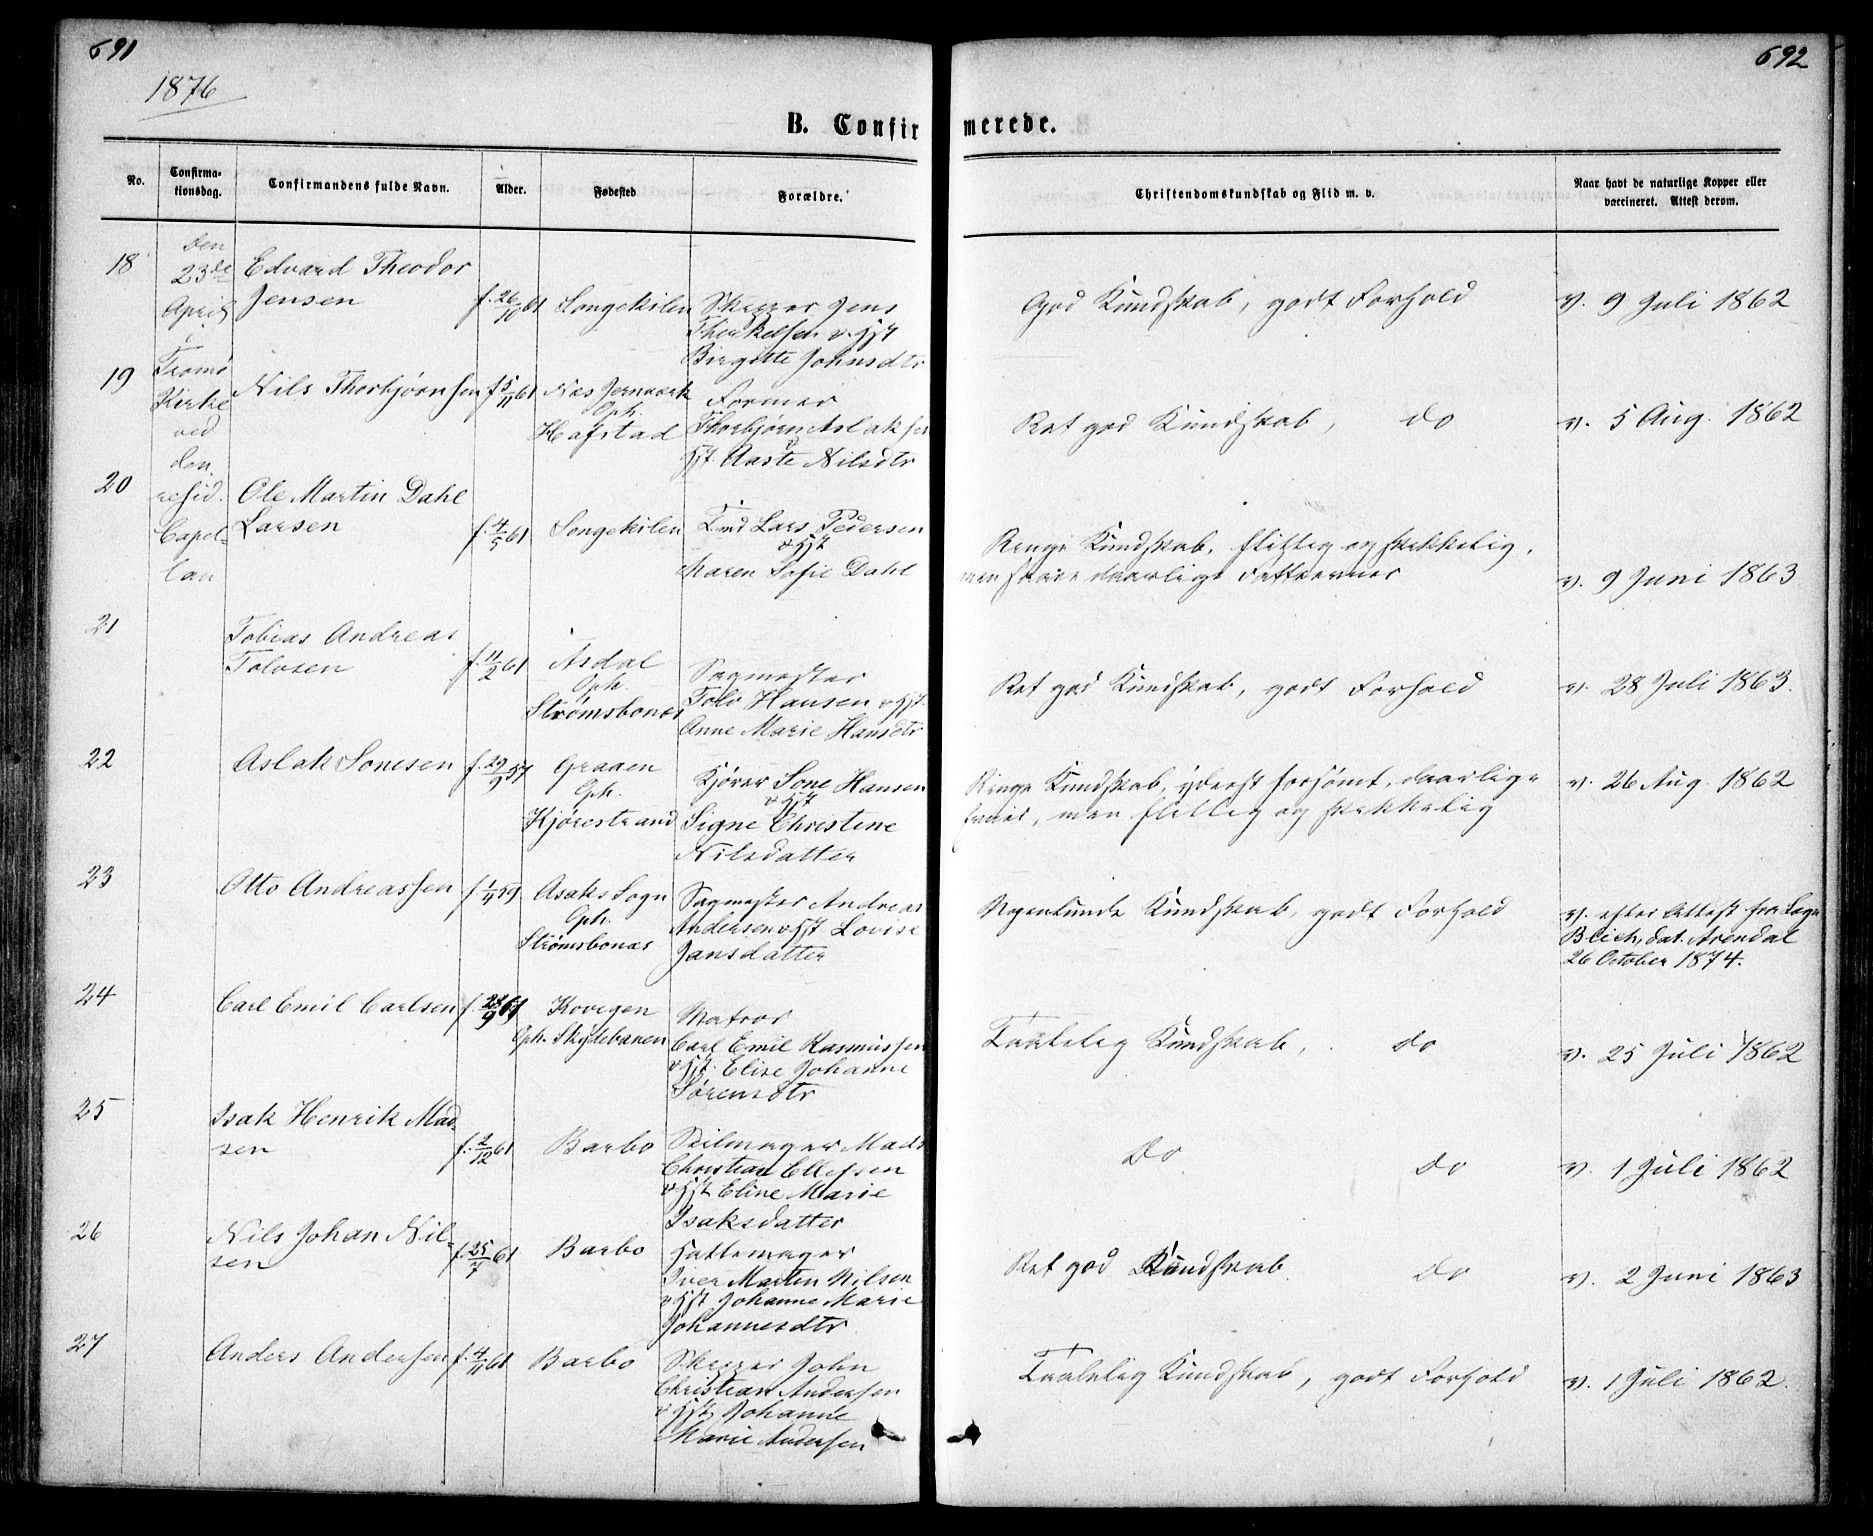 691
692
1876
B. Confirmerede.
No.
Confirmationsdag.
Confirmandens fulde Navn.
Alder.
Fødested
Forældre.
Christendomskundskab og Flid m. v.
Naar havt de naturlige Kopper eller
vaccineret. Attest derom.
Den
23de
April
i
Tromø
Kirke
ved
den
resid.
Capel-
lan
18
Edvard Theodor
Jensen
f. 26/10 61
Songekilen
Skipper Jens
Therkelsen & Hst
Birgitte Johnsdtr
God Kundskab, godt Forhold
v. 9 Juli 1862
19
Nils Thorbjørnsen
f 5/11 61
Næs Jernværk
Oph.
Hafstad
Former
Thorbjørn Aslaksen
& Hst Aaste Nilsdtr
Ret god Kundskab, do
v. 5 Aug. 1862
20
Ole Martin Dahl
Larsen
f. 4/5 61
Songekilen
Lars Pedersen
& Hst
Maren Sofie Dahl
Ringe Kundskab, flittig og skikkelig,
men svare daarlige Fatteevner
v. 9 Juni 1863
21
Tobias Andreas
Tolvsen
f. 11/2 61
Asdal
Oph.
Strømsbonæs
Sagmester
Tolv Hansen & Hst.
Anne Marie Hansdtr
Ret god Kundskab, godt Forhold
v. 28 Juli 1863.
22
Aslak Sonesen
f. 29/9 57
Graaen
Oph.
Kjørestrand
Kjører Sone Hansen
& Hst
Signe Christine
Nilsdatter
Ringe Kundskab, yderst forsømt, daarlige
Evner, men flittig og skikkelig
v. 26 Aug. 1862
23
Otto Andreassen
f 1/4 59
Asaks Sogn
Oph.
Strømsbonæs
Sagmester Andreas
Andersen & Hst Lovise
Jansdatter
Nogenlunde Kundskab, godt Forhold
v. efter Attest fra Læge
Bleich, dat. Arendal
26 October 1874.
24
Carl Emil Carlsen
f. 28/9 61
Kovegen
Oph. Skydebanen
Matros
Carl Emil Rasmussen
& Hst. Elise Johanne
Sørensdtr
Taalelig Kundskab, do
v. 25 Juli 1862
25
Isak Henrik Mad-
sen
f. 2/12 61
Barbo
Seilmager Mads
Christian Ellefsen
& Hst Eline Marie
Isaksdatter
Do do
v. 1 Juli 1862
26
Nils Johan Nil-
sen
f. 25/7 61
Barbo
Hattemager
Iver Martin Nilsen
& Hst Johanne Marie
Johannesdtr
Ret god Kundskab do
v. 2 Juni 1863
27
Anders Andersen
f. 4/11 61
Barbo
Skipper John
Christian Andersen
& Hst Johanne
Marie Andersen
Taalelig Kundskab, godt Forhold
v. 1 Juli 1862.